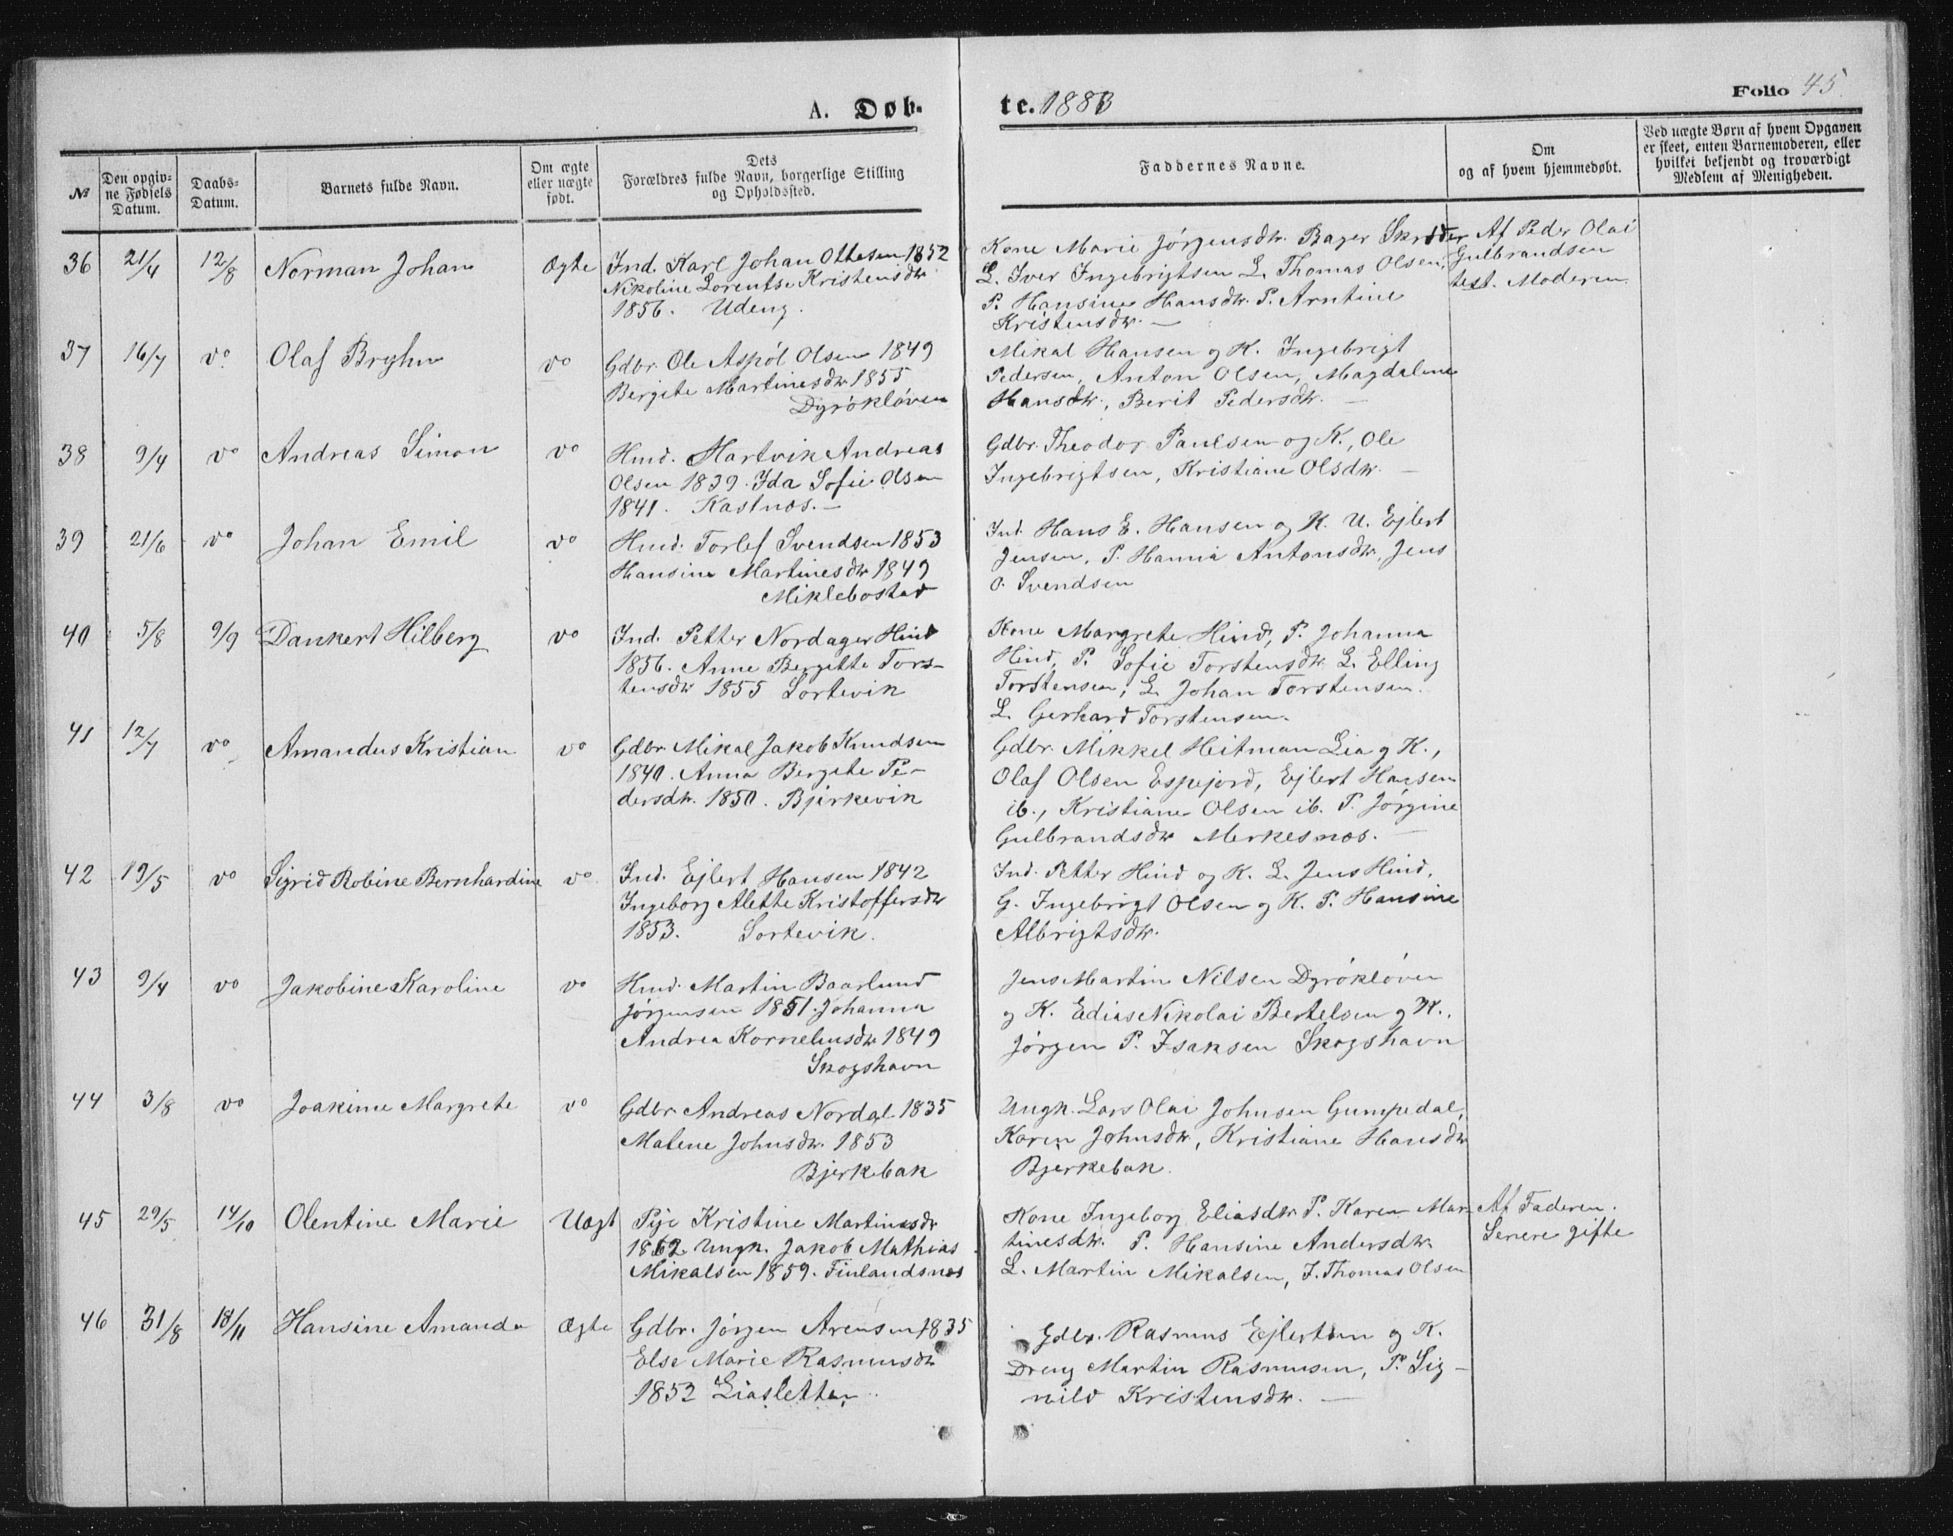 A. Døb-
te. 1883
Folio 45.
№
Den opgiv-
ne Fødsels
Datum.
Daabs-
Datum.
Barnets fulde Navn.
Om ægte
eller uægte
født.
Dets
Forældres fulde Navn, borgerlige Stilling
og Opholdssted.
Faddernes Navne.
Om
og af hvem hjemmedøbt.
Ved uægte Børn af hvem Opgaven
er skeet, enten Barnemoderen, eller
hvilket bekjendt og troværdigt
Medlem af Menigheden.
36 21/4 12/8 Norman Johan Ægte
Ind. Karl Johan Ottesen 1852
Nikoline Lorentse Kristensdtr
1856. Udeng.
Kone Marie Jørgensdtr. Bager Skrøder
L. Iver Ingebrigtsen L. Thomas Olsen,
P. Hansine Hansdtr. P. Arntine
Kristensdtr. —
Af Peder Olai
Gulbrandsen
test. Moderen
37 16/7 vo Olaf Bryhn vo
Gdbr. Ole Aspöl Olsen 1849
Bergite Martinesdtr 1855
Dyrökløven
Mikal Hansen og K. Ingebrigt
Pedersen, Anton Olsen, Magdalene
Hansdtr., Berit Pedersdtr. —
38 9/4 vo Andreas Simon vo
Hmd. Hartvik Andreas
Olsen 1839. Ida Sofie Olsen
1841. Kastnæs. —
Gdbr. Theodor Paulsen og K., Ole
Ingebrigtsen, Kristiane Olsdtr. —
39 21/6 vo Johan Emil vo
Hmd. Torlef Svendsen 1853
Hansine Martinesdtr 1849
Miklebostad
Ind. Hans E. Hansen og K. U. Ejlert
Jensen, P. Hanna Antonsdtr, Jens
O. Svendsen
40 5/8 9/9 Dankert Hilberg vo
Ind. Petter Nordager Hind
1856. Anne Bergitte Tors-
tensdtr 1855 Sortevik
Kone Margrete Hind, P. Johanna
Hind, P. Sofie Torstensdtr. L. Elling
Torstensen, L. Johan Torstensen.
L. Gerhard Torstensen.
41 12/7 vo Amandus Kristian vo
Gdbr. Mikal Jakob Knudsen
1840. Anna Bergete Pe-
dersdtr. 1850. Bjerkevik
Gdbr. Mikkel Heitman Lia og K.,
Olaf Olsen Espejord, Ejlert Hansen
ib., Kristiane Olsen ib. P. Jørgine
Gulbrandsdtr Merkesnæs. —
42 19/5 vo Sigrid Robine Bernhardine vo
Ind. Ejlert Hansen 1842
Ingeborg Alette Kristoffersdtr
1853. Sortevik.
Ind. Petter Hind og K. L. Jens Hind,
G. Ingebrigt Olsen og K. P. Hansine
Albrigtsdtr.
43 9/4 vo Jakobine Karoline vo
Hmd. Martin Baarlund
Jørgensen 1851. Johanna
Andrea Korneliusdtr 1849
Skogshavn
Jens Martin Nilsen Dyrökløven
og K. Edias Nikolai Bertelsen og K.,
Jørgen P. Isaksen Skogshavn
44 3/8 vo Joakime Margrete vo
Gdbr. Andreas Nordal 1835
Malene Johnsdtr. 1853
Bjerkebak
Ungk. Lars Olai Johnsen Gumpedal,
Karen Johnsdtr, Kristiane Hansdtr
Bjerkebak
45 29/5 14/10 Olentine Marie Uægt
Pige Kristine Martinesdtr
1862 Ungk. Jakob Mathias
Mikalsen 1859. Finlandsnæs
Kone Ingeborg Eliasdtr P. Karen Mar-
tinesdtr. P. Hansine Andersdtr.
L. Martin Mikalsen, J. Thomas Olsen
Af Faderen.
Senere gifte
46 31/8 18/11 Hansine Amanda Ægte
Gdbr. Jørgen Arensen 1835
Else Marie Rasmusdtr
1852 Liasletten
Gdbr. Rasmus Ejlertsen og K.
Dreng Martin Rasmusen, P. Sig-
nild Kristensdtr. —